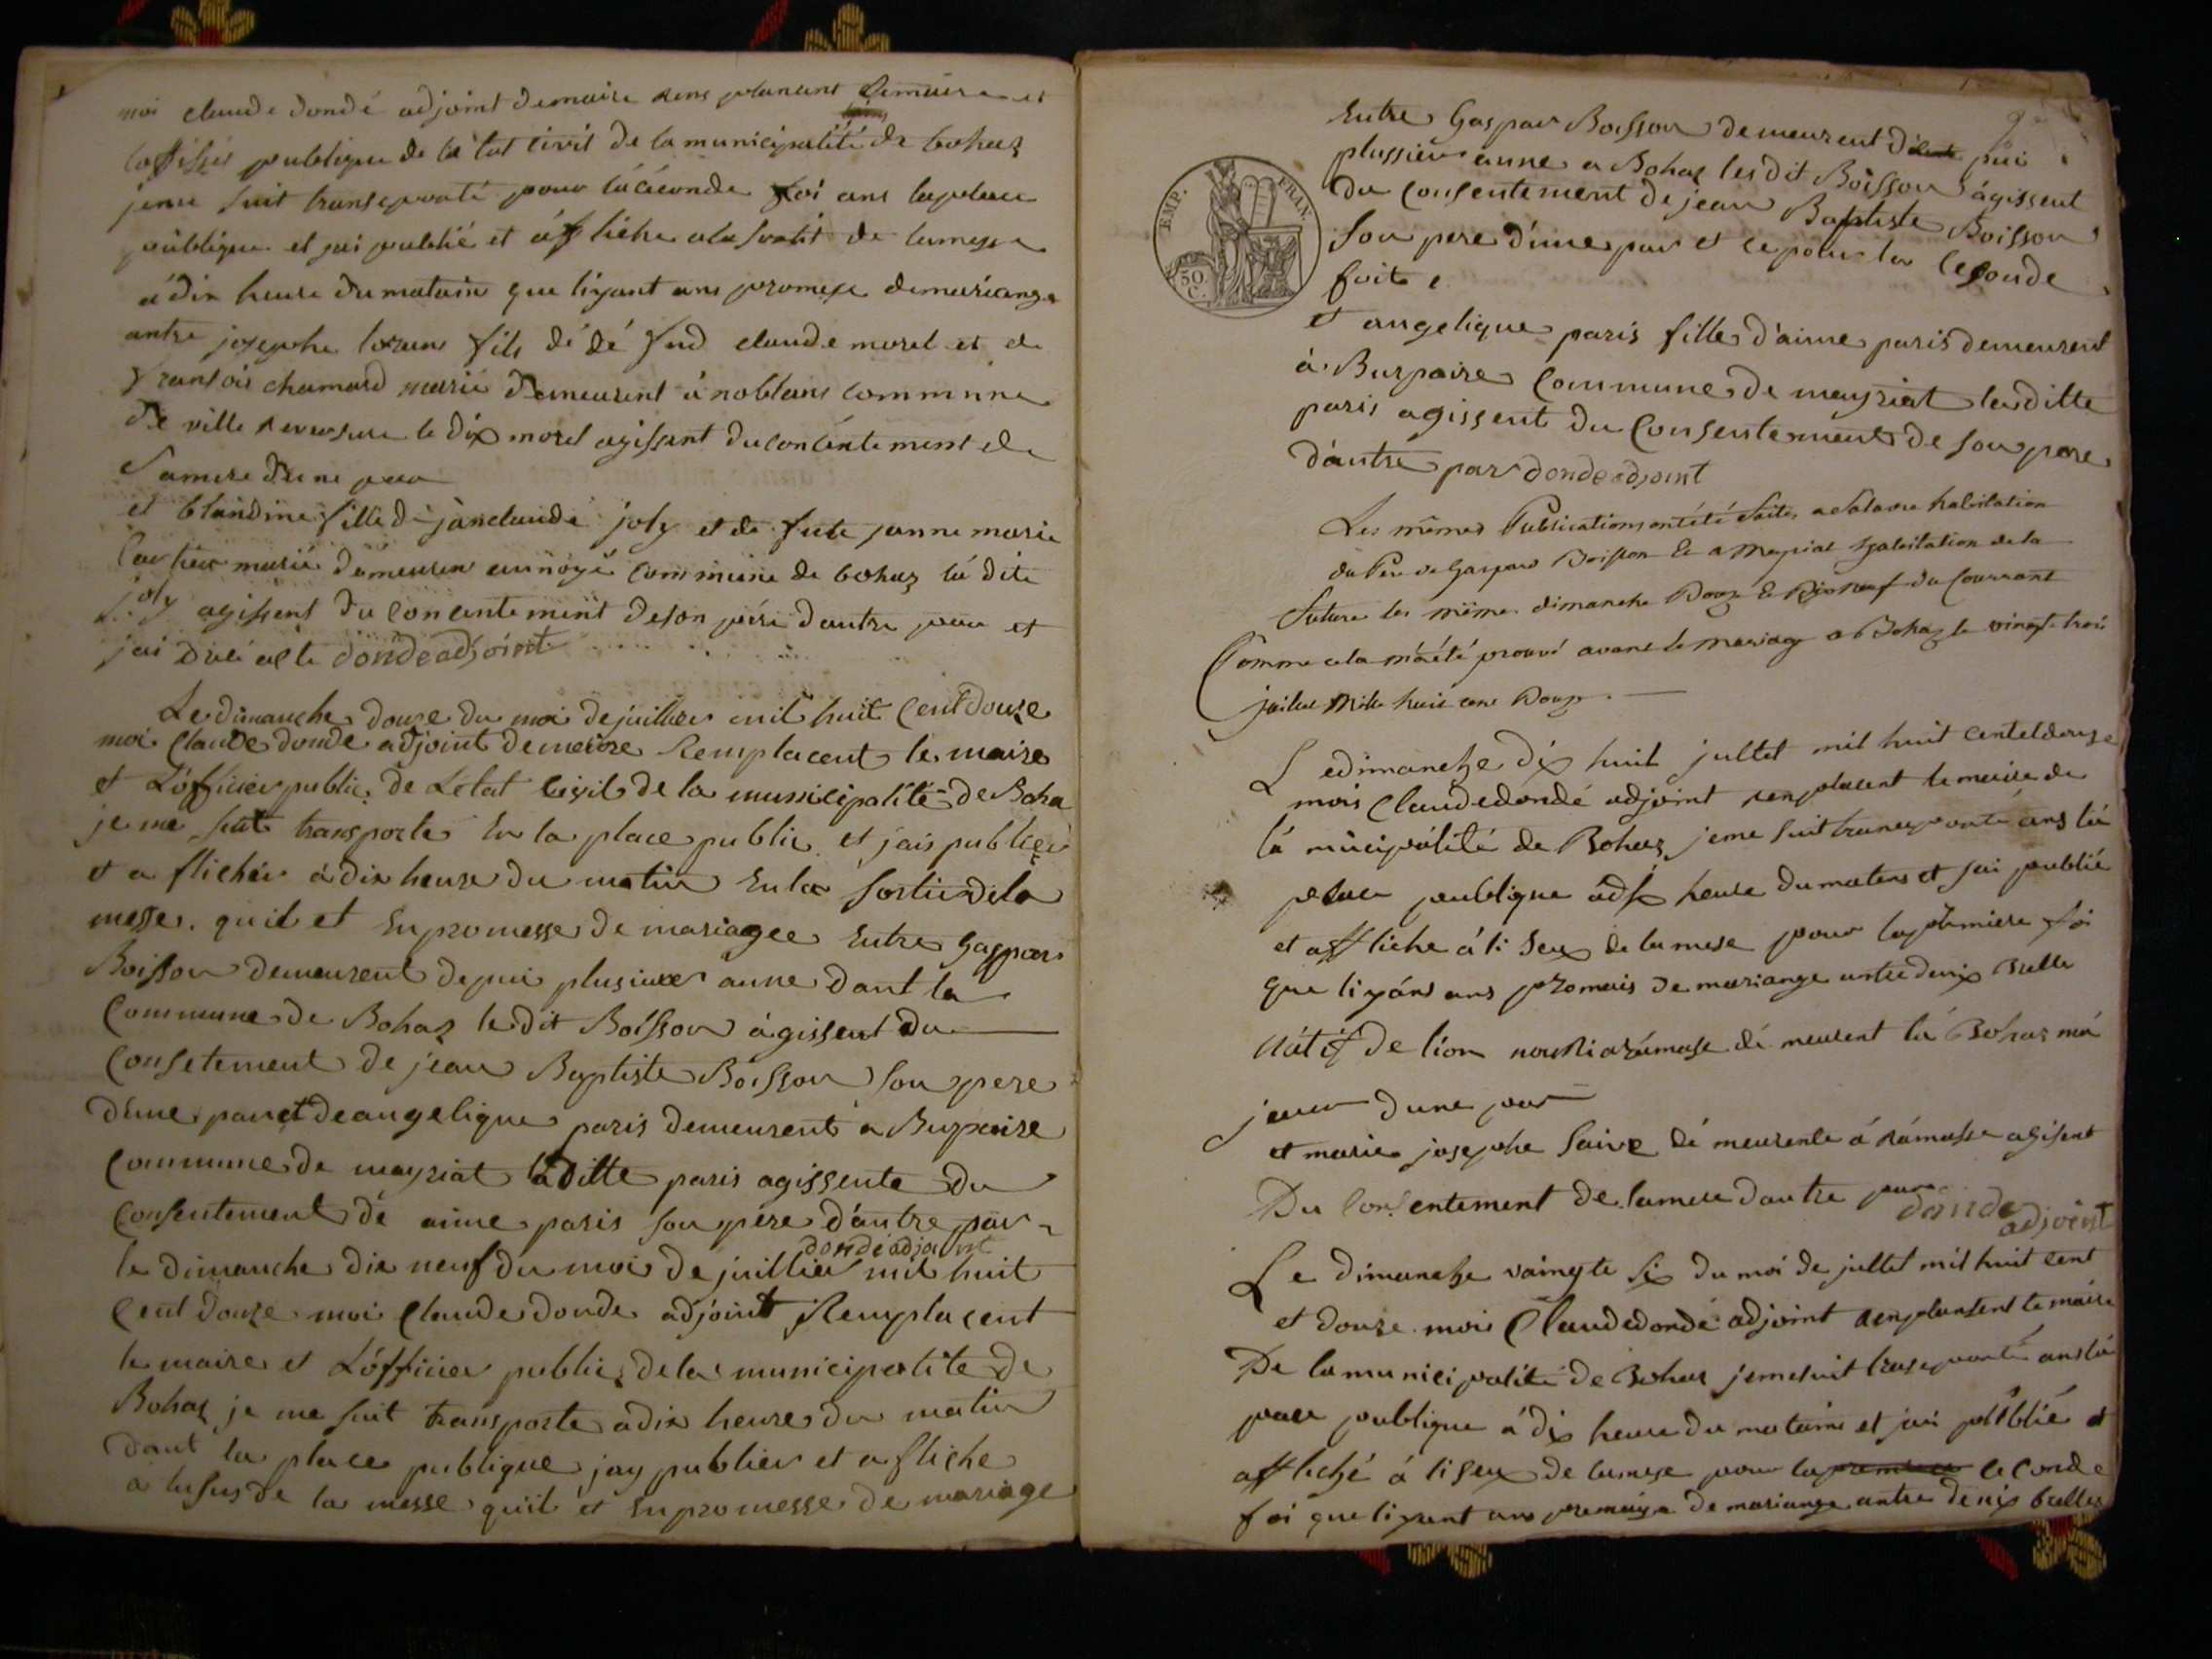 moi claude dondé adjoint demaire rens planant lemaire et
loffisié publique de la tat civit de la municipalité de bohas
jeme suit transeporté pour lá céconde foi ans laplace
publique et jai publié et áffliche ala sortit de lamesse
á dix heure dumatain que liyant ans promese demariange
antre josephe fils dé dé fud claude morel et de
fransois chamard marié demeurent á noblans commune
de ville reversure le dix morel agissant du conténtement de
samere dune par
et blandine fille de janclaude joly et de fute janne marie
marié démeuren commune de bohas lá dite
joly agissent du conantement deson pére dautre par et
jai acte dondeadjoint
Le dimanche douze du moi dejuillier mil huit Cent douze
moi Claude donde adjoint demeire Remplacent le maire
et L'officier public de L'etat Civil de la municipalité de Boha
je me suit transporte En la place public et jais publier
et a flicher á dix heure du matin En la sortie dela
messe. quil et En promesse de mariagee Entre Gaspar
Boisson demeurent depui plusiure anne dant la
Commune de Bohas le dit Boisson ágissent du
Consetement de jean Baptiste Boisson Son pere
d'une par et deangelique paris demeurent a Burpaire
Commune de mayriat la ditte paris agissente du
Consentement de aime paris Son pére d'autre par
dondéadjoint
le dimanche dix neuf du moi de juillier mil huit
Cent douze moi Claude donde adjoint Remplacent
le maire et L'officier public de la municipalite de
Bohas je me suit transporte adix heure du matin
dant la place publique jay publier et afliche
a lusus de la messe quil et En promesse de mariage
Entre Gaspar Boisson demeurent de pui
plussieur anne a Bohas les dit Boisson ágissent
du Consentement de jean Baptiste Boisson
Son pere d'une par et ce pour la Ceconde
foite
EMP. FRAN.
50 C.
et angelique paris fille d'aime paris demeurent
á Burpaire Commune de mayriat laditte
paris agissent du Consentement de Son pere
d'autre par dondeadjoint
Les mêmes Publications ont été faites a habitation
du Père de Gaspard Boisson & a Meyriat habitation de la
future les mêmes dimanche Douze & Dix neuf du Courrant
Comme cela m'a été prouvé avant le mariage a Bohaz le vingt trois
juillet Mille huit cent Douze
Ledimanche dix huit jultet mil huit centetdouze
mois Claudedondé adjoint renplacent lemaire de
lá municipálité de Bohas jeme suit transeporté ans lá
place publique adix heure dumatens et jai publié
et affliche á li seux de lamese pour laprémiere foi
que liyáns ans promais de mariange antre denix Bulle
nátif de lion démeurent lá Bohas má
jeur dune par
et marie josephe Saive démeurente á rámasse agisent
Du Consentement de lamere dautre par donde
adjoint
Le dimanche vaingte six du moi de jultet mil huit cent
et douze moi Claudedondé adjoint renplansent le maire
De lamunicipalité de Bohas jemesuit traseporté ans lá
place publique á dix heure du matains et jai publié et
affliché á liseux de lamese pour lapremiere ceconde
foi queliyant ans promaise de mariange antre denix bulle